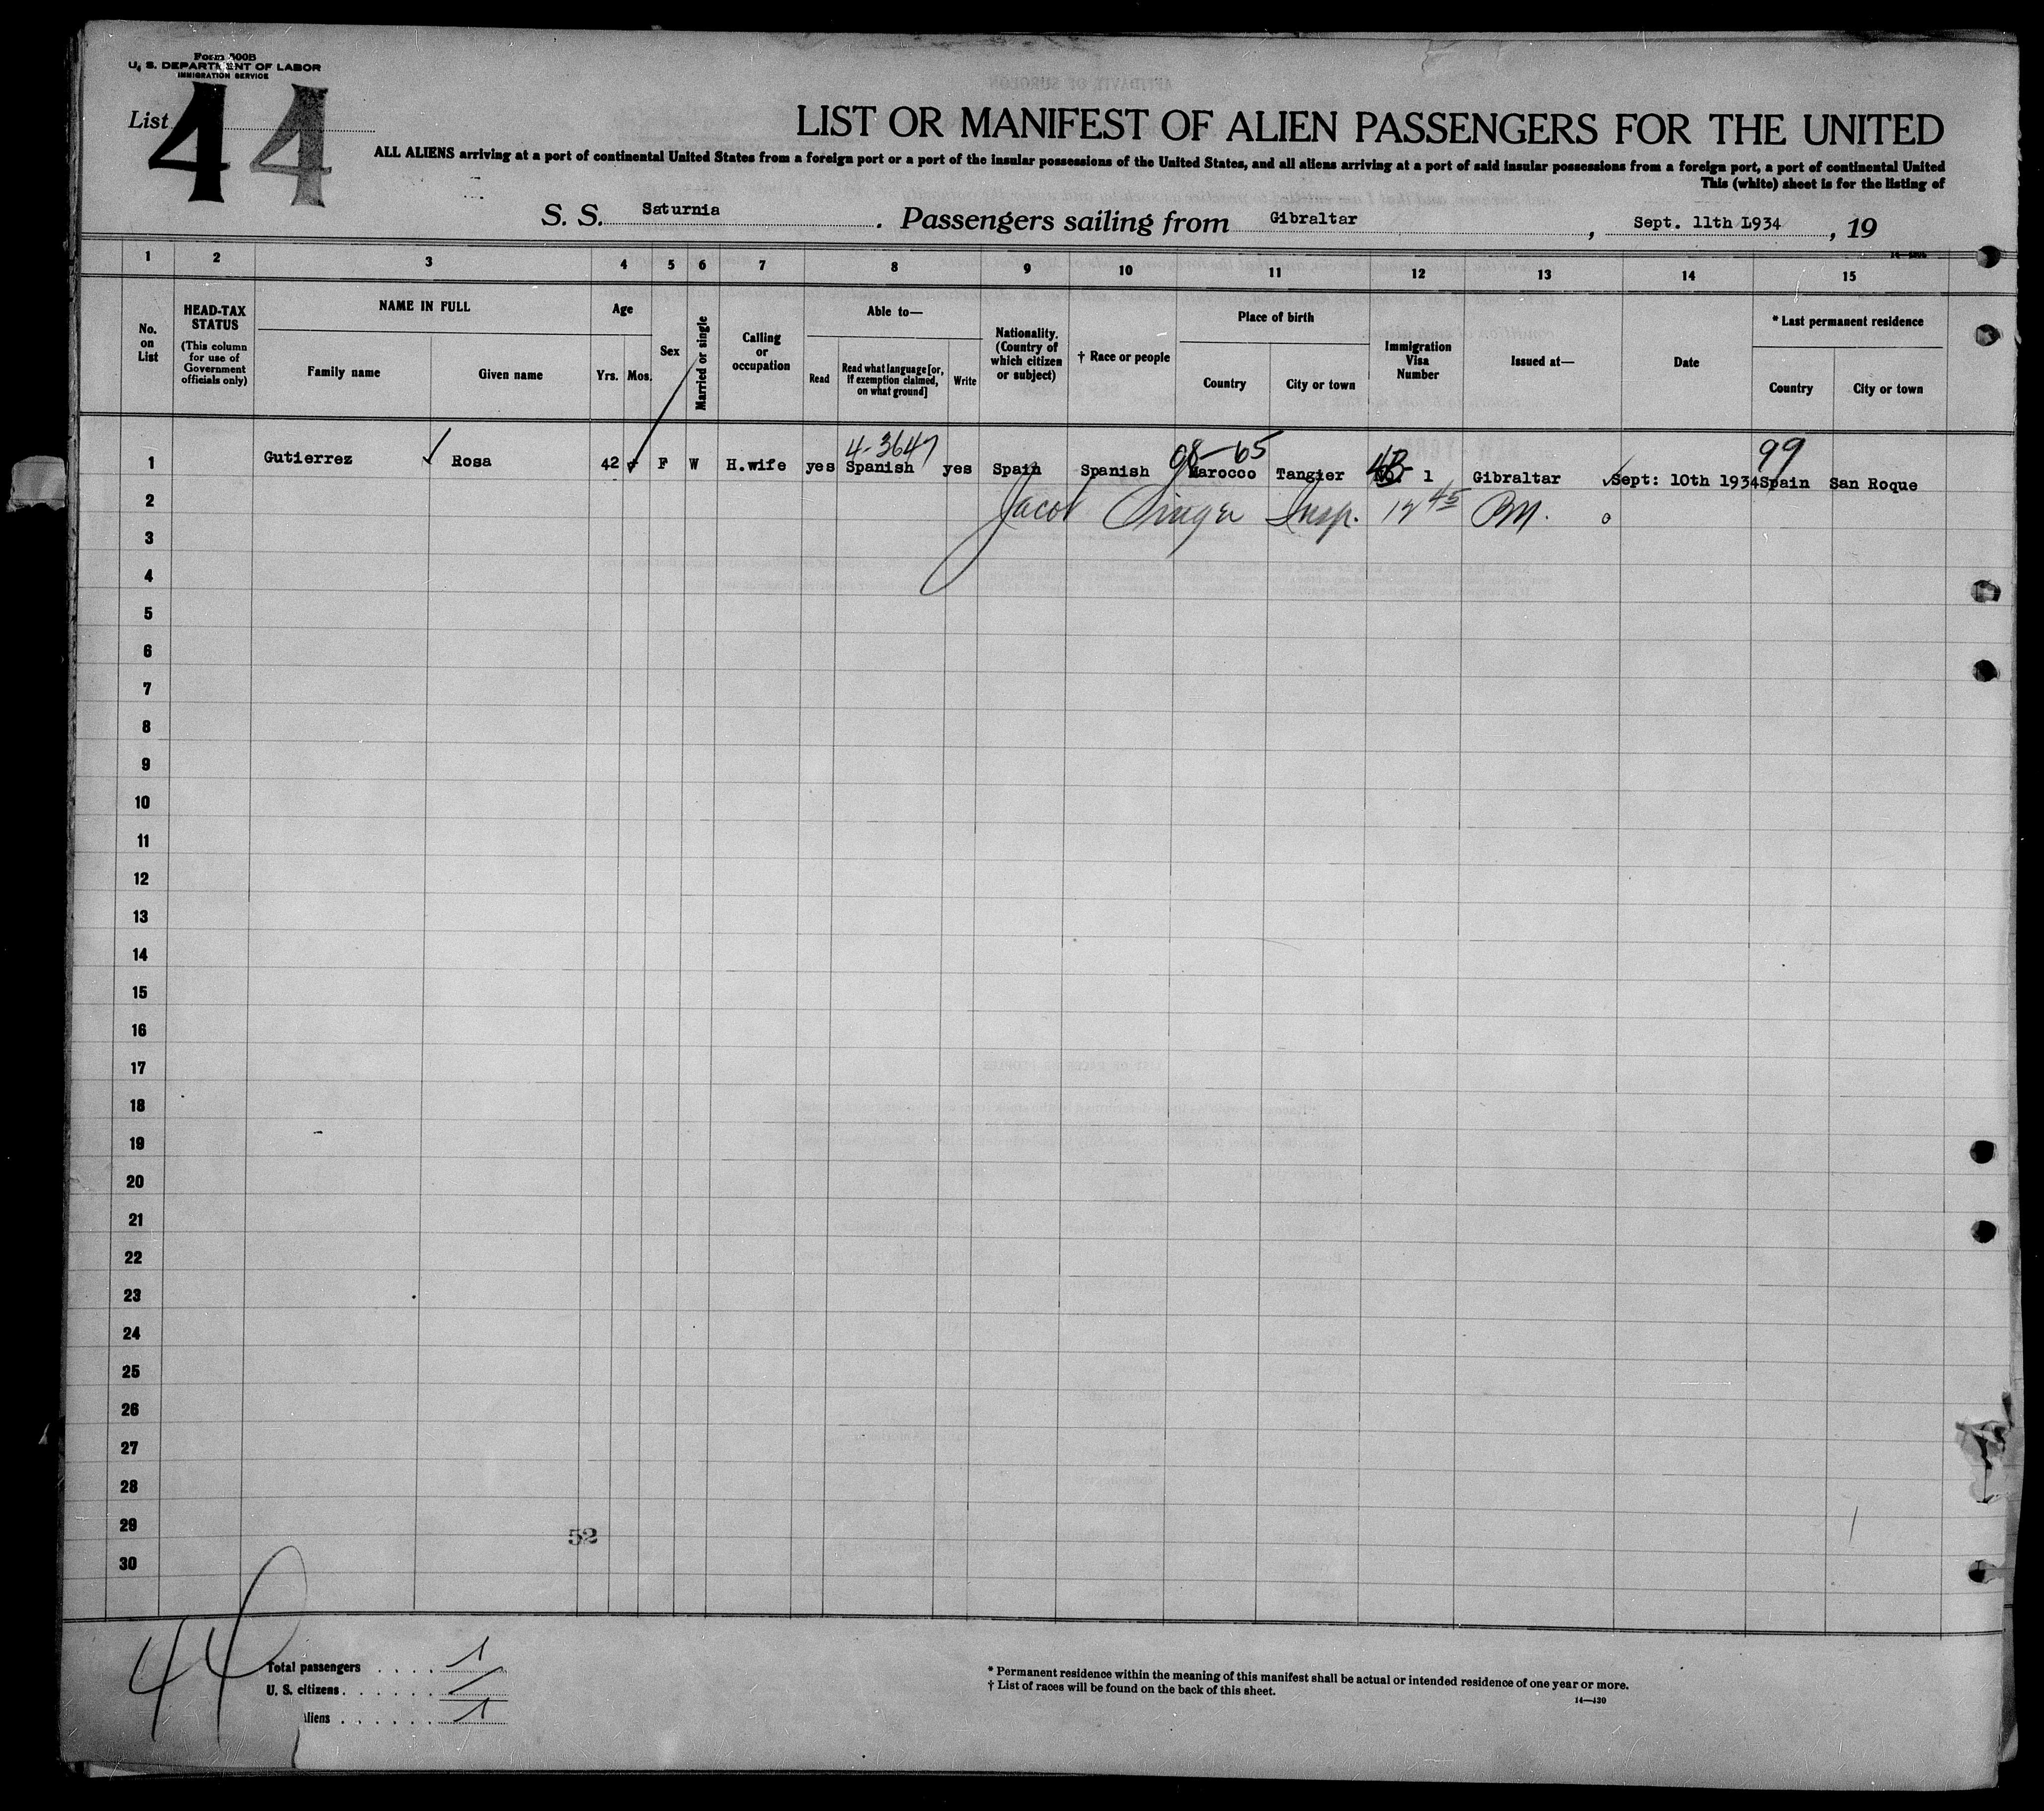 Form 500B
U. S. DEPARTMENT OF LABOR
IMMIGRATION SERVICE
List 44
LIST OR MANIFEST OF ALIEN PASSENGERS FOR THE UNITED
ALL ALIENS arriving at a port of continental United States from a foreign port or a port of the insular possessions of the United States, and all aliens arriving at a port of said insular possessions from a foreign port, a port of continental United
This (white) sheet is for the listing of
S. S. Saturnia. Passengers sailing from Gibraltar, Sept. 11th 1934, 19
1 2 3 4 5 6 7 8 9 10 11 12 13 14 15
No. on List
HEAD-TAX STATUS
(This column for use of Government officials only)
NAME IN FULL
Family name Given name
Age
Yrs. Mos.
Sex
Married or single
Calling or occupation
Able to—
Read
Read what language [or, if exemption claimed, on what ground]
Write
Nationality. (Country of which citizen or subject)
† Race or people
Place of birth
Country City or town
Immigration Visa Number
Issued at—
Date
* Last permanent residence
Country City or town
4-3647 98-65 99
1 Gutierrez Rosa 42 F W H.wife yes Spanish yes Spain Spanish Marocoo Tangier 1 Gibraltar Sept: 10th 1934 Spain San Roque
2 Jacob Singer Insp. 12 45 PM.
3
4
5
6
7
8
9
10
11
12
13
14
15
16
17
18
19
20
21
22
23
24
25
26
27
28
29
52
30
44
Total passengers . . . . 1
U. S. citizens . . . . . .
Aliens . . . . . . 1
* Permanent residence within the meaning of this manifest shall be actual or intended residence of one year or more.
† List of races will be found on the back of this sheet.
14—430